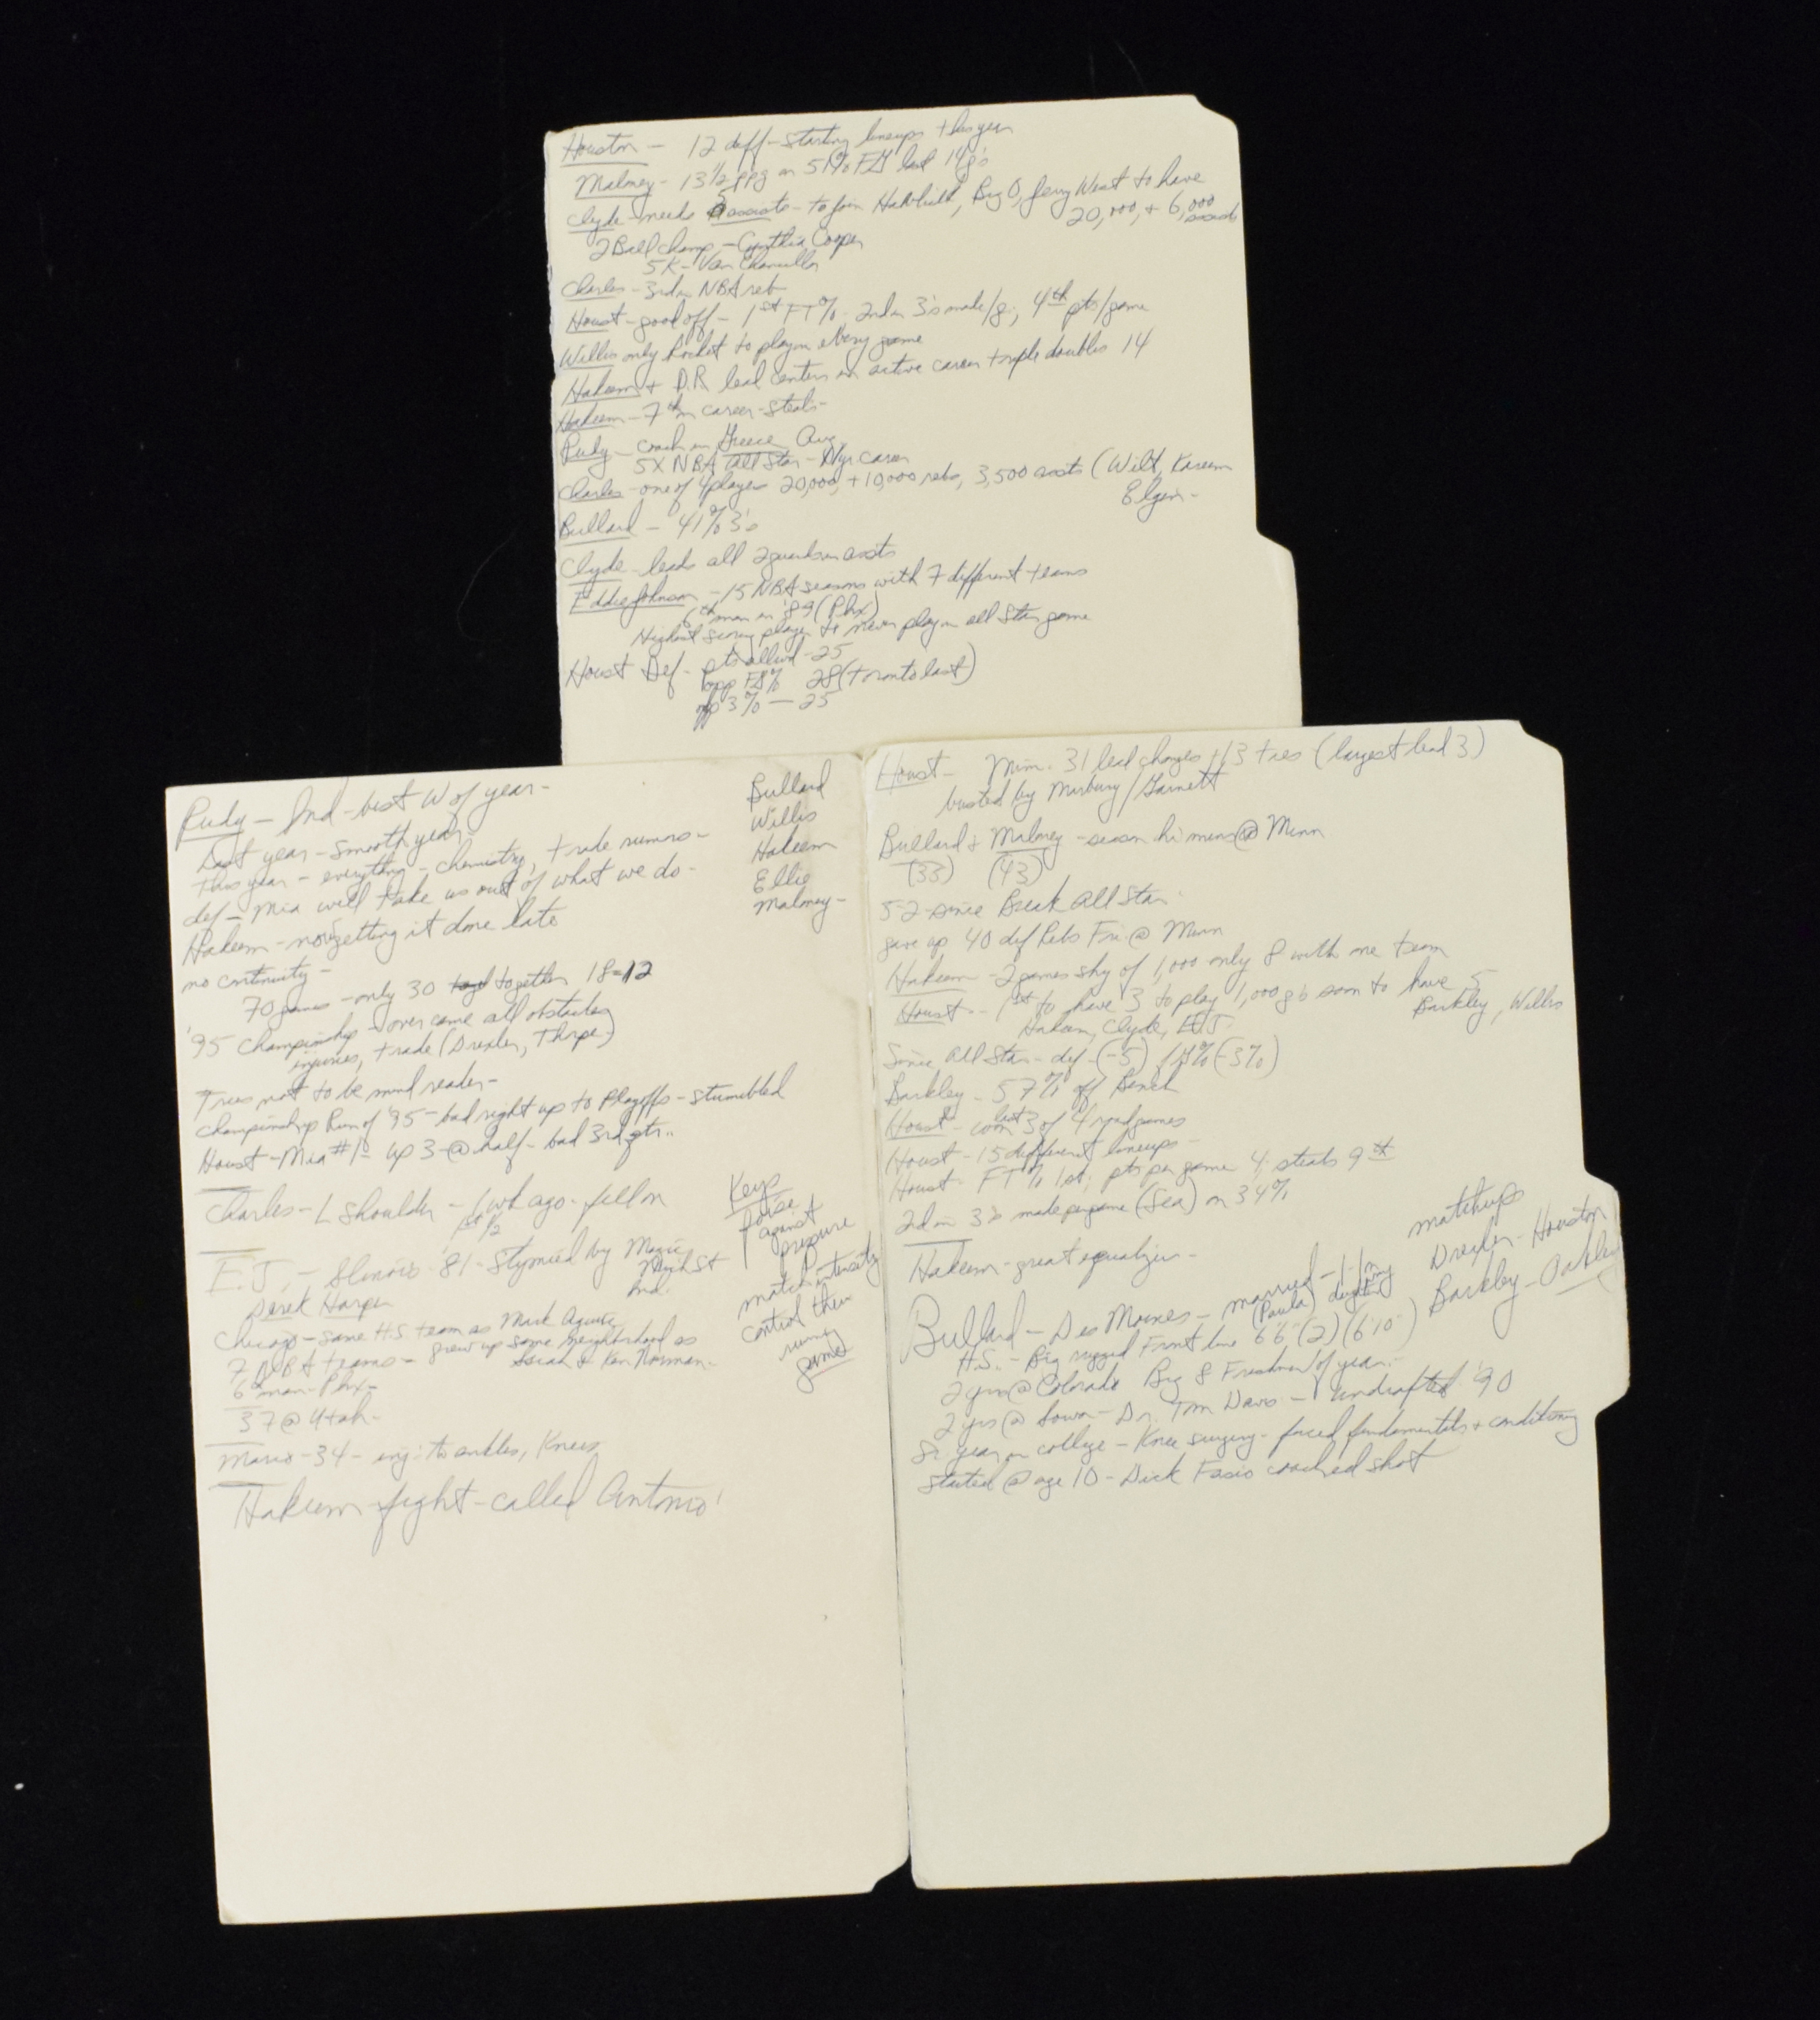 Houston - 12 diff-starting lineups this year
Maloney - 13 1/2 ppg on 51% FG last 14 g's
Clyde - needs 5 assists - to join Havlicek, Big O, Jerry West to have
20,000, + 6,000
assists
2 Ball champ - Cynthia Cooper
5K - Van Chancellor
Charles - 3rd in NBA reb
Houst - good off - 1st FT%, 2nd in 3's made/g, 4th pts/game
Willis only Rocket to play in every game
Hakeem + D.R. lead centers in active career triple doubles 14
Hakeem - 7th in career - steals -
Rudy - coach in Greece Aug.
5X NBA All Star - 11 yr career
Charles - one of 4 players 20,000, + 10,000 rebs, 3,500 assts (Wilt, Kareem
Elgin -
Bullard - 41% 3's
Clyde - leads all 2 guards in assts
Eddie Johnson - 15 NBA seasons with 7 different teams
6th man in '89 (Phx)
Highest scoring player to never play in all Star game
Houst Def - pts allwd - 25
opp FG% 28 (Toronto last)
opp 3% - 25
Rudy - Ind - best W of year -
Last year - smooth year -
this year - everything - chemistry, trade rumors -
def - Mia will take us out of what we do -
Hakeem - not getting it done late
no continuity -
70 games - only 30 together 18-12
'95 Championship - over came all obstacles
injuries, trade (Drexler, Thorpe)
Tries not to be mind reader -
Championship Run of '95 - bad right up to Playoffs - stumbled
Houst - Mia #1 - up 3 @ half - bad 3rd qtr..
Charles - L shoulder - 1 wk ago - fell on
1st 1/2
E.J. - Illinois - 81 - stymied by Magic
Mich St
Ind.
Derek Harper
Chicago - same H.S. team as Mark Aguirre
grew up same neighborhood as
Isiah & Ken Norman -
7 NBA teams -
6th man - Phx -
37 @ Utah -
Mario - 34 - inj. to ankles, Knees
Hakeem fight - called Antonio
Bullard
Willis
Hakeem
Elie
Maloney -
Keys
poise
against
pressure
match intensity
control their
running
game
Houst - Minn. 31 lead changes + 13 ties (largest lead 3)
busted by Marbury/Garnett
Bullard & Maloney - season hi mins @ Minn
(33) (43)
5-2 since Break All Star
gave up 40 def Rebs Fri @ Minn
Hakeem - 2 games shy of 1,000 only 8 with one team
Houst - 1st to have 3 to play 1,000 g's soon to have 5
Hakeem, Clyde, E.J. Barkley, Willis
Since All Star - def - (-5) FG% (-3%)
Barkley - 57% off Bench
Houst - won last 3 of 4 road games
Houst - 15 different lineups -
Houst - FT% 1st, pts per game 4, steals 9th
2nd in 3's made per game (Sea) on 34%
Hakeem - great equalizer -
matchups
Drexler - Houston
Barkley - Oakley
Bullard - Des Moines - married - (Paula) daughter
H.S. - Big rugged Front line 6'6" (2) (6'10")
2 yrs @ Colorado Big 8 Freshmen of year -
2 yrs @ Iowa - Dr. Tom Davis - undrafted '90
Sr. year in college - Knee surgery - forced fundamentals + conditioning
Started @ age 10 - Dick Fasio coached shot